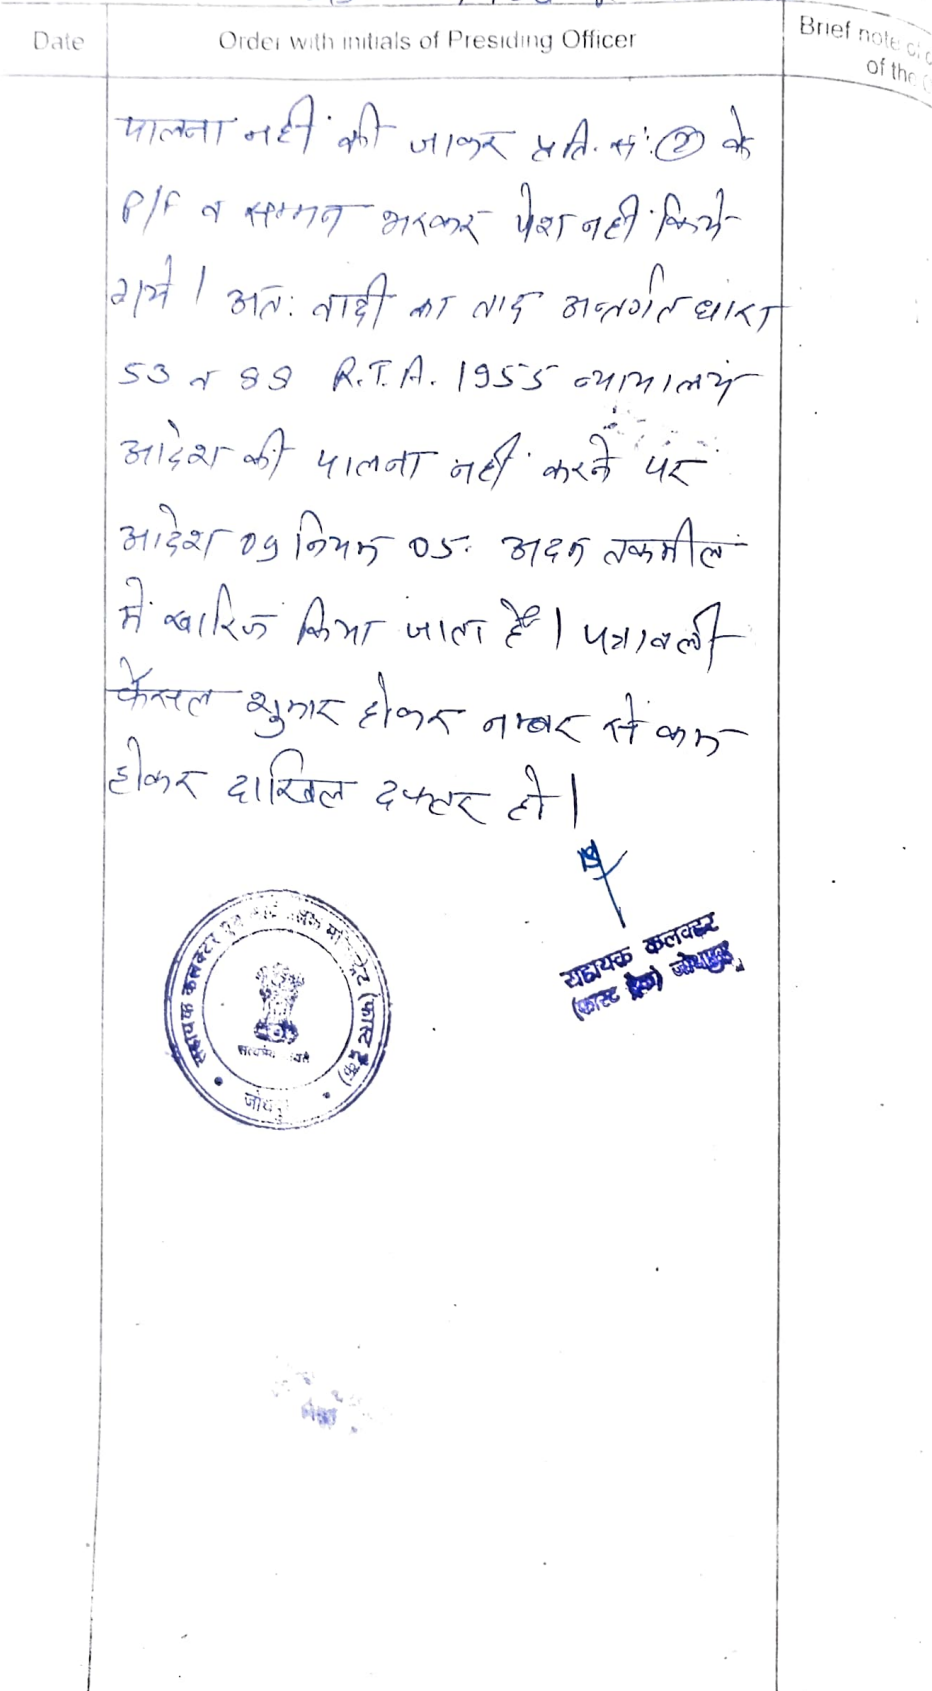 Date
Order with initials of Presiding Officer
Brief note of
of the
पालना नहीं की जाकर प्रति. सं. (2) के
P/F व सम्मन भरकर पेश नहीं किये
गये। अतः वादी का वाद अन्तर्गत धारा
53 व 88 R.T.A. 1955 न्यायालय
आदेश की पालना नहीं करने पर
आदेश 09 नियम 05 अदम तकमील
में खारिज किया जाता है। पत्रावली
फैसल शुमार होकर नम्बर से कम
होकर दाखिल दफ्तर हो।
सहायक कलक्टर
(फास्ट ट्रेक) जोधपुर
सहायक कलक्टर (फास्ट ट्रेक)